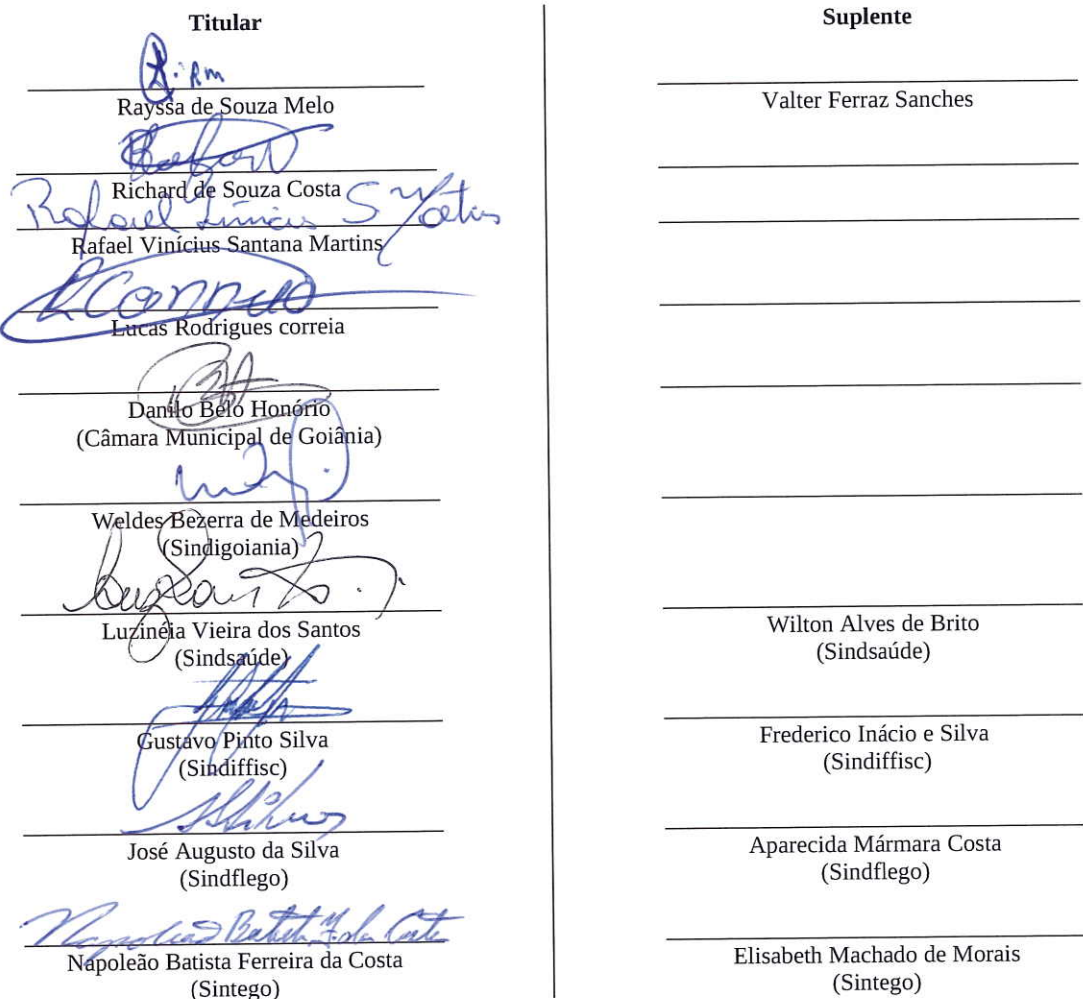 Titular
Rayssa de Souza Melo
Richard de Souza Costa
Rafael Vinícius S Martins
Rafael Vinícius Santana Martins
Lucas Rodrigues correia
Danilo Belo Honório
(Câmara Municipal de Goiânia)
Weldes Bezerra de Medeiros
(Sindigoiania)
Luzinéia Vieira dos Santos
(Sindsaúde)
Gustavo Pinto Silva
(Sindiffisc)
José Augusto da Silva
(Sindflego)
Napoleão Batista F. da Costa
Napoleão Batista Ferreira da Costa
(Sintego)
Suplente
Valter Ferraz Sanches
Wilton Alves de Brito
(Sindsaúde)
Frederico Inácio e Silva
(Sindiffisc)
Aparecida Mármara Costa
(Sindflego)
Elisabeth Machado de Morais
(Sintego)